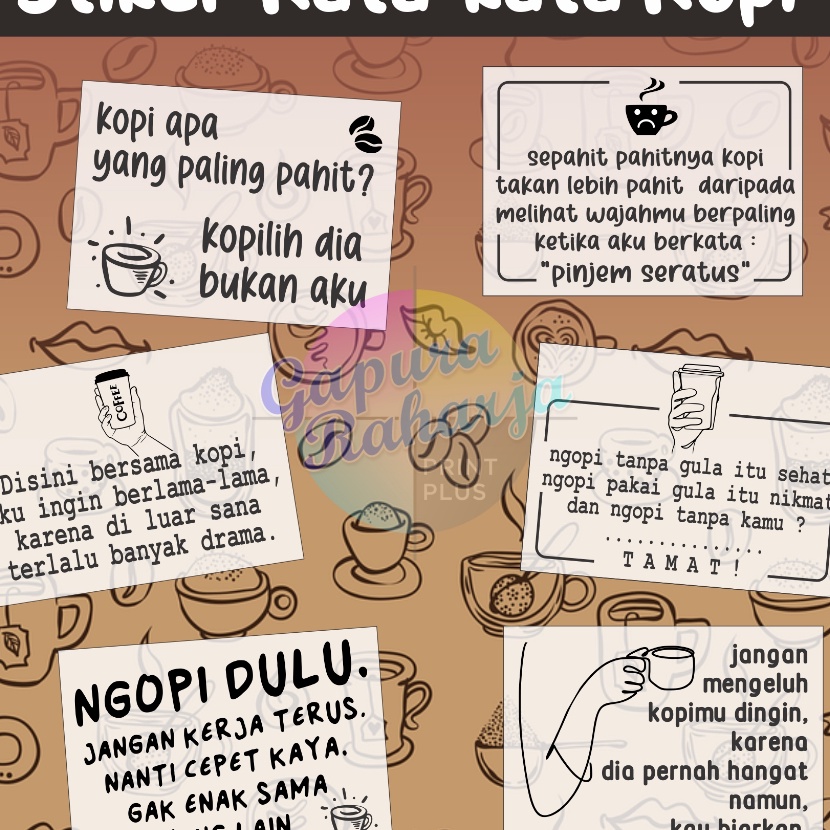 Stiker Kata-kata Kopi
kopi apa
yang paling pahit?
kopilih dia
bukan aku
sepahit pahitnya kopi
takan lebih pahit daripada
melihat wajahmu berpaling
ketika aku berkata :
"pinjem seratus"
Gapura
Raharja
PRINT
PLUS
COFFEE
Disini bersama kopi,
ku ingin berlama-lama,
karena di luar sana
terlalu banyak drama.
ngopi tanpa gula itu sehat
ngopi pakai gula itu nikmat
dan ngopi tanpa kamu ?
...............
TAMAT!
NGOPI DULU.
JANGAN KERJA TERUS.
NANTI CEPET KAYA.
GAK ENAK SAMA
LAIN
jangan
mengeluh
kopimu dingin,
karena
dia pernah hangat
namun,
kau biarkan